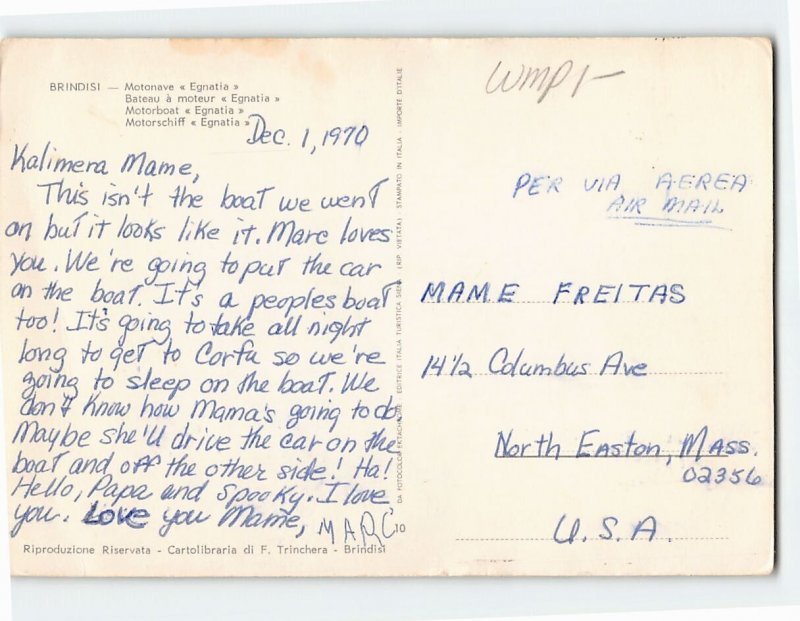 BRINDISI — Motonave « Egnatia »
Bateau à moteur « Egnatia »
Motorboat « Egnatia »
Motorschiff « Egnatia »
Dec. 1, 1970
Kalimera Mame,
This isn't the boat we went
on but it looks like it. Marc loves
you. We're going to put the car
on the boat. It's a peoples boat
too! It's going to take all night
long to get to Corfu so we're
going to sleep on the boat. We
don't know how Mama's going to do
Maybe she'll drive the car on the
boat and off the other side! Ha!
Hello, Papa and Spooky. I love
you. Love you Mame, MARC
Riproduzione Riservata - Cartolibraria di F. Trinchera - Brindisi
DA FOTOCOLOR EKTACHROME EDITRICE ITALIA TURISTICA (RIP. VIETATA) STAMPATO IN ITALIA - IMPORTE D'ITALIE
PER VIA AEREA
AIR MAIL
MAME FREITAS
14 1/2 Columbus Ave
North Easton, Mass.
02356
U.S.A.